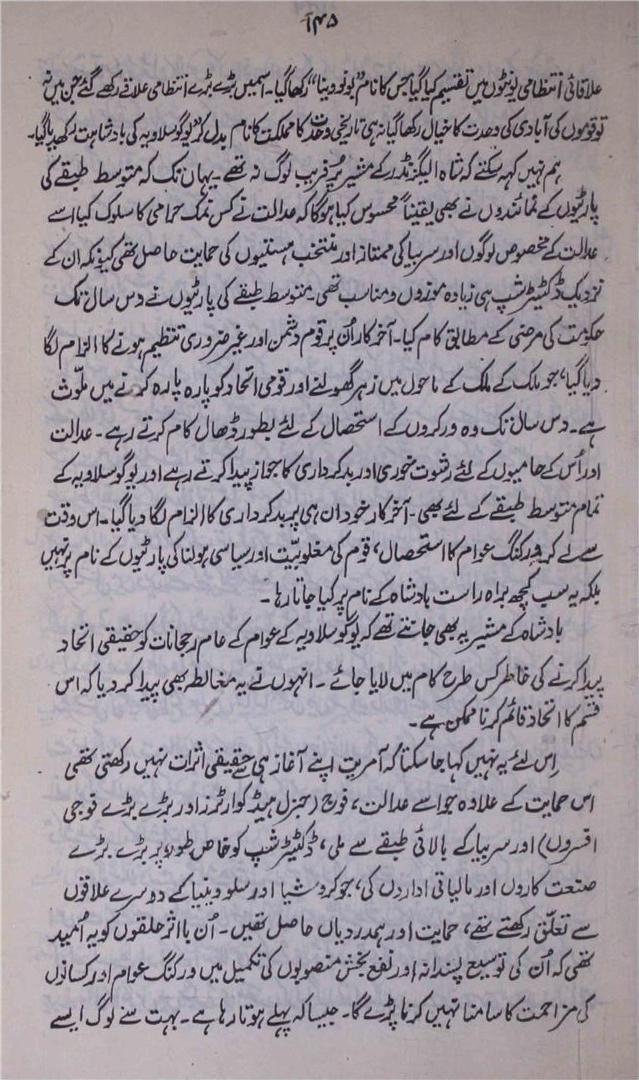 ۱۴۵
علاقائی انتظامی یونٹوں میں تقسیم کیا گیا جس کا نام ”بونووینا“ رکھا گیا۔ اسمیں بڑے بڑے انتظامی علاقے رکھے گئے جن میں نہ
تو قوموں کی آبادی کی وحدت کا خیال رکھا گیا نہ ہی تاریخی وحدت کا مملکت کا نام بدل کر ”یوگوسلاویہ کی بادشاہت“ رکھ دیا گیا۔
ہم نہیں کہہ سکتے کہ شاہ الیگزنڈر کے مشیر پُر فریب لوگ نہ تھے۔ یہاں تک کہ متوسط طبقے کی
پارٹیوں کے نمائندوں نے بھی یقیناً محسوس کیا ہو گا کہ عدالت نے کس نمک حرامی کا سلوک کیا اسے
عدالت کے مخصوص لوگوں اور سربیا کی ممتاز اور منتخب ہستیوں کی حمایت حاصل تھی کیونکہ ان کے
نزدیک ڈکٹیٹر شپ ہی زیادہ موزوں و مناسب تھی۔ متوسط طبقے کی پارٹیوں نے دس سال تک
حکومت کی مرضی کے مطابق کام کیا۔ آخر کار اُن پر قوم دشمن اور غیر ضروری تنظیم ہونے کا الزام لگا
دیا گیا، جو ملک کے ملک کے ماحول میں زہر گھولنے اور قومی اتحاد کو پارہ پارہ کرنے میں ملوّث
ہے۔ دس سال تک وہ ورکروں کے استحصال کے لئے بطور ڈھال کام کرتے رہے۔ عدالت
اور اُس کے حامیوں کے لئے رشوت خوری اور بدکرداری کا جواز پیدا کرتے رہے اور یوگوسلاویہ کے
تمام متوسط طبقے کے لئے بھی۔ آخر کار خود ان ہی پر بدکرداری کا الزام لگا دیا گیا۔ اس وقت
سے لے کر ورکنگ عوام کا استحصال، قوم کی مغلوبیّت اور سیاسی ہولناکی پارٹیوں کے نام پر نہیں
بلکہ یہ سب کچھ براہ راست بادشاہ کے نام پر کیا جاتا رہا۔
بادشاہ کے مشیر یہ بھی جانتے تھے کہ یوگوسلاویہ کے عوام کے عام رجحانات کو حقیقی اتحاد
پیدا کرنے کی خاطر کس طرح کام میں لایا جائے۔ انہوں نے یہ مغالطہ بھی پیدا کر دیا کہ اس
قسم کا اتحاد قائم کرنا ممکن ہے۔
اِس لئے یہ نہیں کہا جا سکتا کہ آمریت اپنے آغاز ہی سے حقیقی اثرات نہیں رکھتی تھی
اس حمایت کے علاوہ جو اسے عدالت، فوج (جنرل ہیڈ کوارٹرز اور بڑے بڑے فوجی
افسروں) اور سربیا کے بالائی طبقے سے ملی، ڈکٹیٹر شپ کو خاص طور پر بڑے بڑے
صنعت کاروں اور مالیاتی اداروں کی، جو کروشیا اور سلووینیا کے دوسرے علاقوں
سے تعلّق رکھتے تھے، حمایت اور ہمدردیاں حاصل تھیں۔ اُن با اثر حلقوں کو یہ اُمید
تھی کہ اُن کی توسیع پسندانہ اور نفع بخش منصوبوں کی تکمیل میں ورکنگ عوام اور کسانوں
کی مزاحمت کا سامنا نہیں کرنا پڑے گا۔ جیسا کہ پہلے ہوتا رہا ہے۔ بہت سے لوگ ایسے